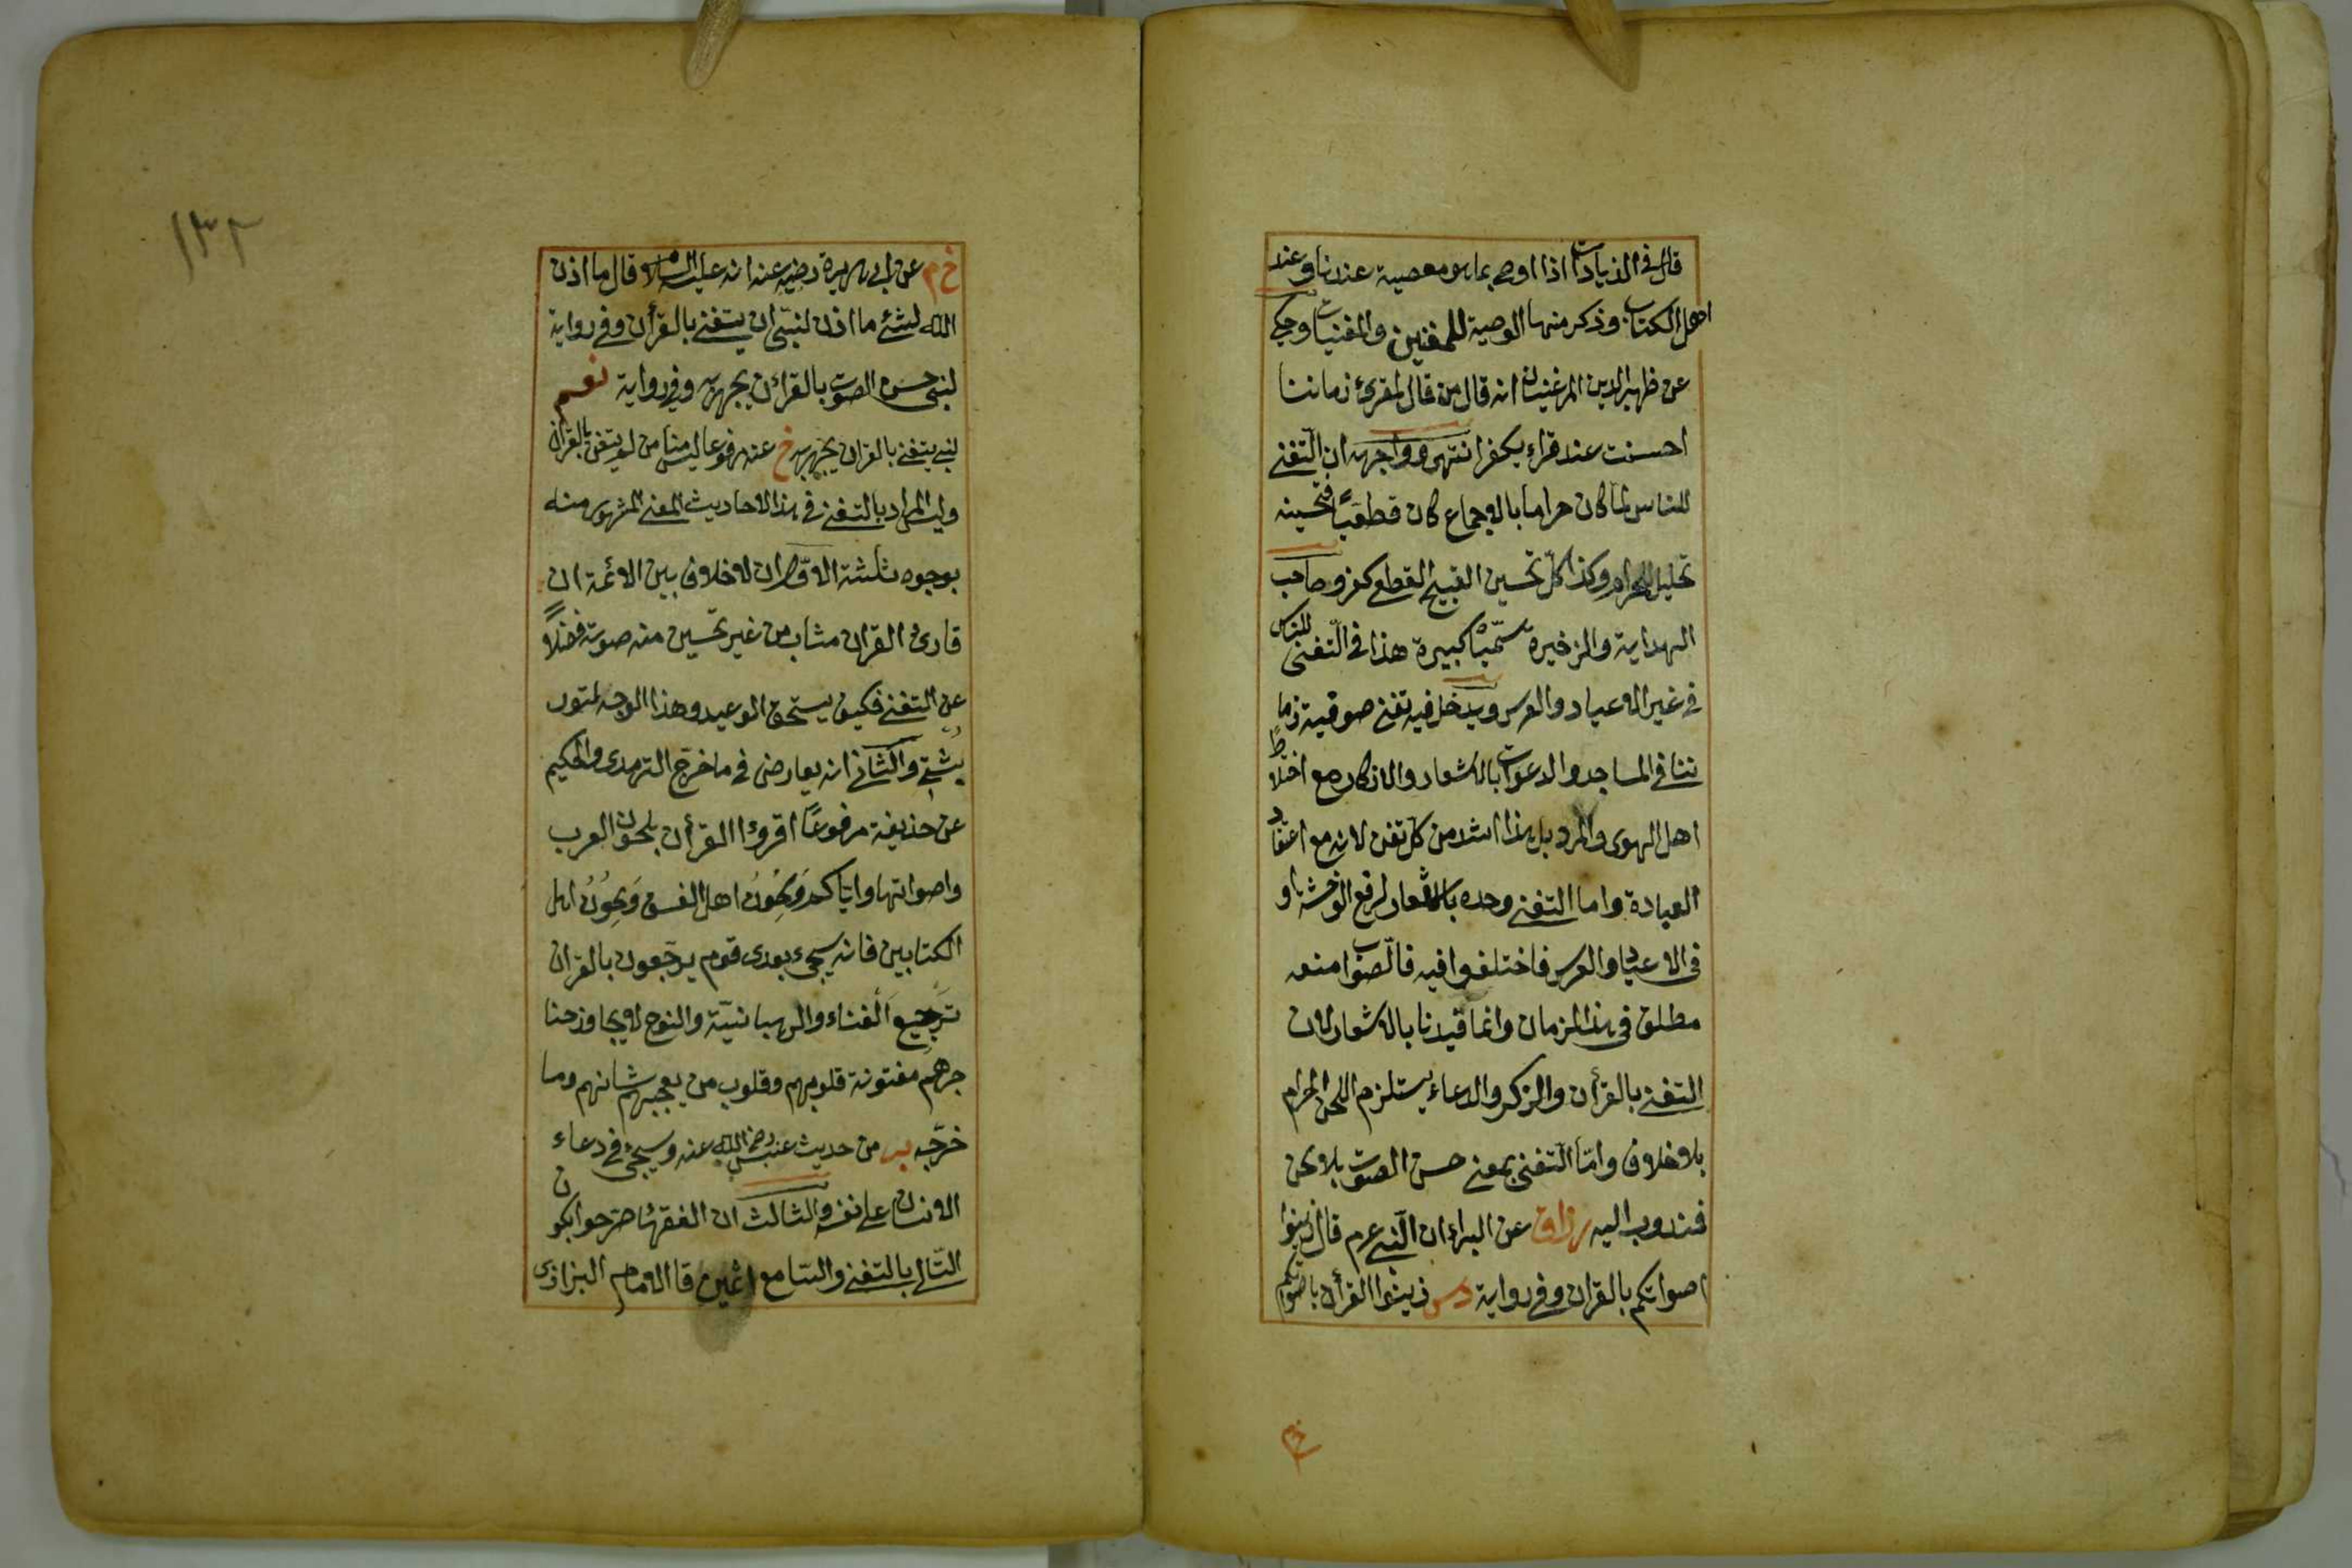 قال في الزيادات اذا اوصى بما هو معصية عندنا وعند
اهل الكتاب وذكر منها الوصية للمغنين والمغنيات وحكى
عن ظهير الدين المرغيناني انه قال من قال لمقرئ زماننا
احسنت عند قراءته يكفر انتهى ووجهه ان التغنى
للناس لما كان حراما بالاجماع كان قطعيًا فتحسينه
تحليل الحرام وكذا كلّ تحسين القبيح القطعى كفر وصاحب
الهداية والذخيرة سمّيا كبيرة هذا فى التّغنى للناس
فى غير الاعياد والعرس ويدخل فيه تغنى صوفية زما
ننا فى المساجد والدعوات بالاشعار والاذكار مع اختلاط
اهل الهوى والمرد بل هذا اشد من كل تغن لانه مع اعتقاد
العبادة واما التغنى وحده بالاشعار لرفع الوحشة او
فى الاعياد والعرس فاختلفوا فيه فالصّواب منعه
مطلق فى هذا الزمان وانما قيدنا بالاشعار لان
التغنى بالقرأن والذكر والدعاء يستلزم اللحن الحرام
بلا خلاف وامّا التّغنى بمعنى حسن الصوت بلا لحن
فمندوب اليه رزاق عن البراء ان النّبى عم قال زينوا
اصواتكم بالقران وفى رواية دس زينوا القرأن باصواتكم
خ م
١٣٢
خ م عن ابى هريرة رضيه عنه انه عليه السلام قال ما اذن
الله لشئ ما اذن لنبىّ ان يتغنى بالقرأن وفى رواية
لنبى حسن الصوت بالقراءن يجهر به وفى رواية نعم
لنبى يتغنى بالقران يجهر به خ عنه مرفوعا ليس منا من لم يتغن بالقران
وليس المراد بالتغنى فى هذا الاحاديث المعنى المشهور منه
بوجوه ثلثة الاوّل ان لا خلاف بين الائمة ان
قارئ القران مثاب من غير تحسين منه صوته فضلًا
عن التغنى فكيف يستحق الوعيد وهذا الوجه لتور
پشتى والثانى انه يعارض فى ما خرّج الترمذى والحكيم
عن حذيفة مرفوعًا اقروءا القرأن بلحون العرب
واصواتها واياكم ولحون اهل الفسق ولحون اهل
الكتابين فانه سيجئ بعدى قوم يرجّعون بالقران
ترجيع الغناء والرهبانيّة والنوح لا يجاوز حنا
جرهم مفتونة قلوبهم وقلوب من يعجبهم شانهم وما
خرّجه بر من حديث عنبس رضى الله عنه وسيجئ فى دعاء
الانسان على نفسه والثالث ان الفقهاء صرّحوا بكون
التّالى بالتغنى والسّامع اثمين قال الامام البزازى